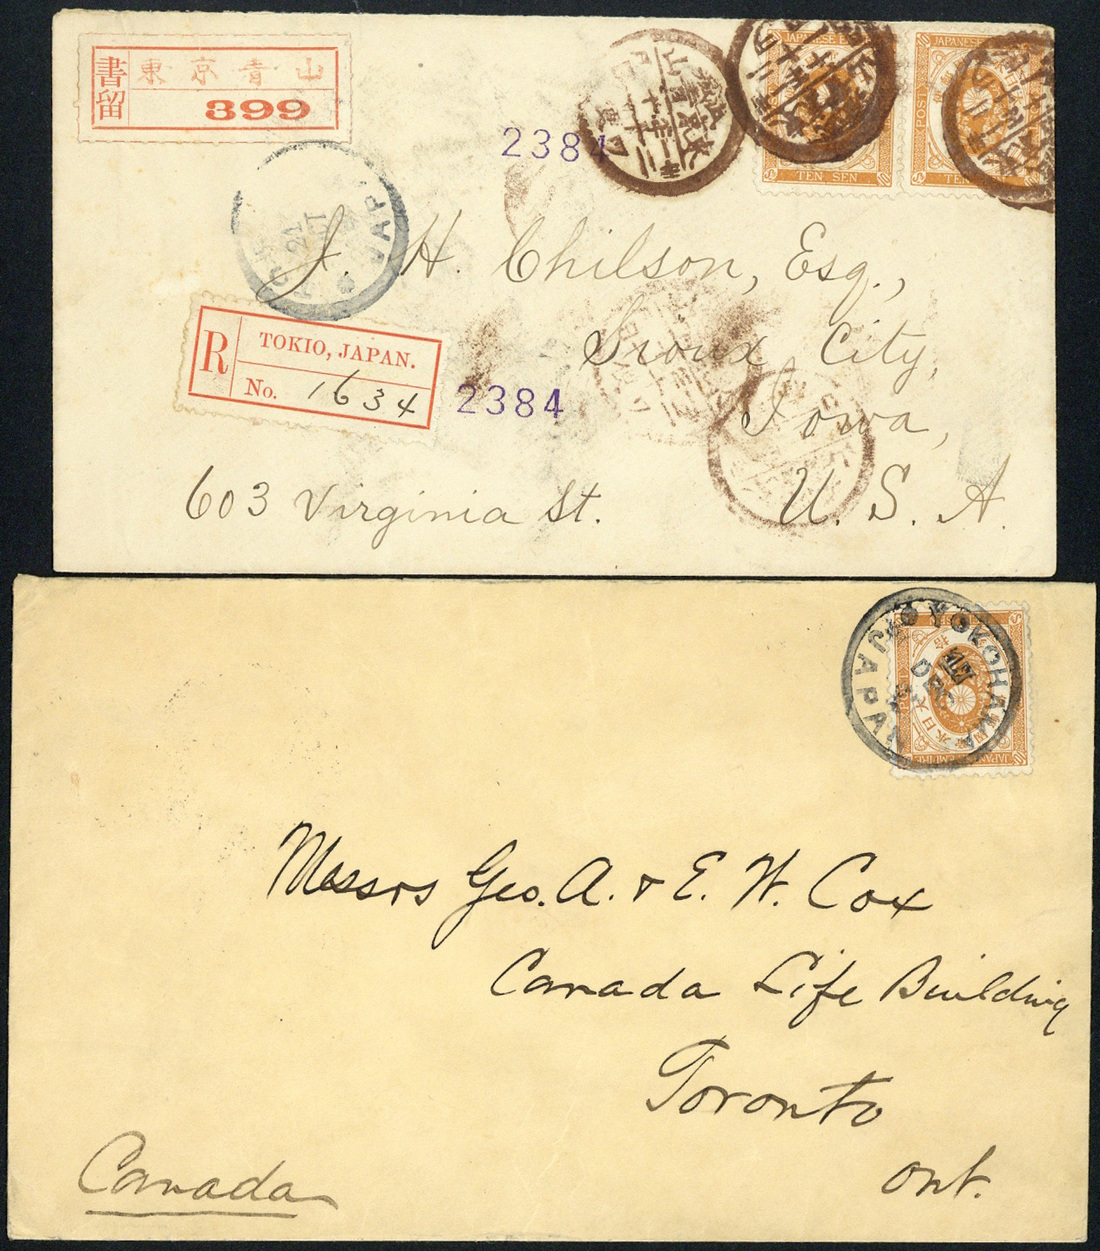 書留
東京青山
399
2384
TEN SEN
JAPAN
J. H. Chilson, Esq.,
Sioux City,
Iowa,
U. S. A.
R
TOKIO, JAPAN.
No. 1634
2384
603 Virginia St.
YOKOHAMA
JAPAN
Messrs Geo. A. & E. W. Cox
Canada Life Building
Toronto
Ont.
Canada